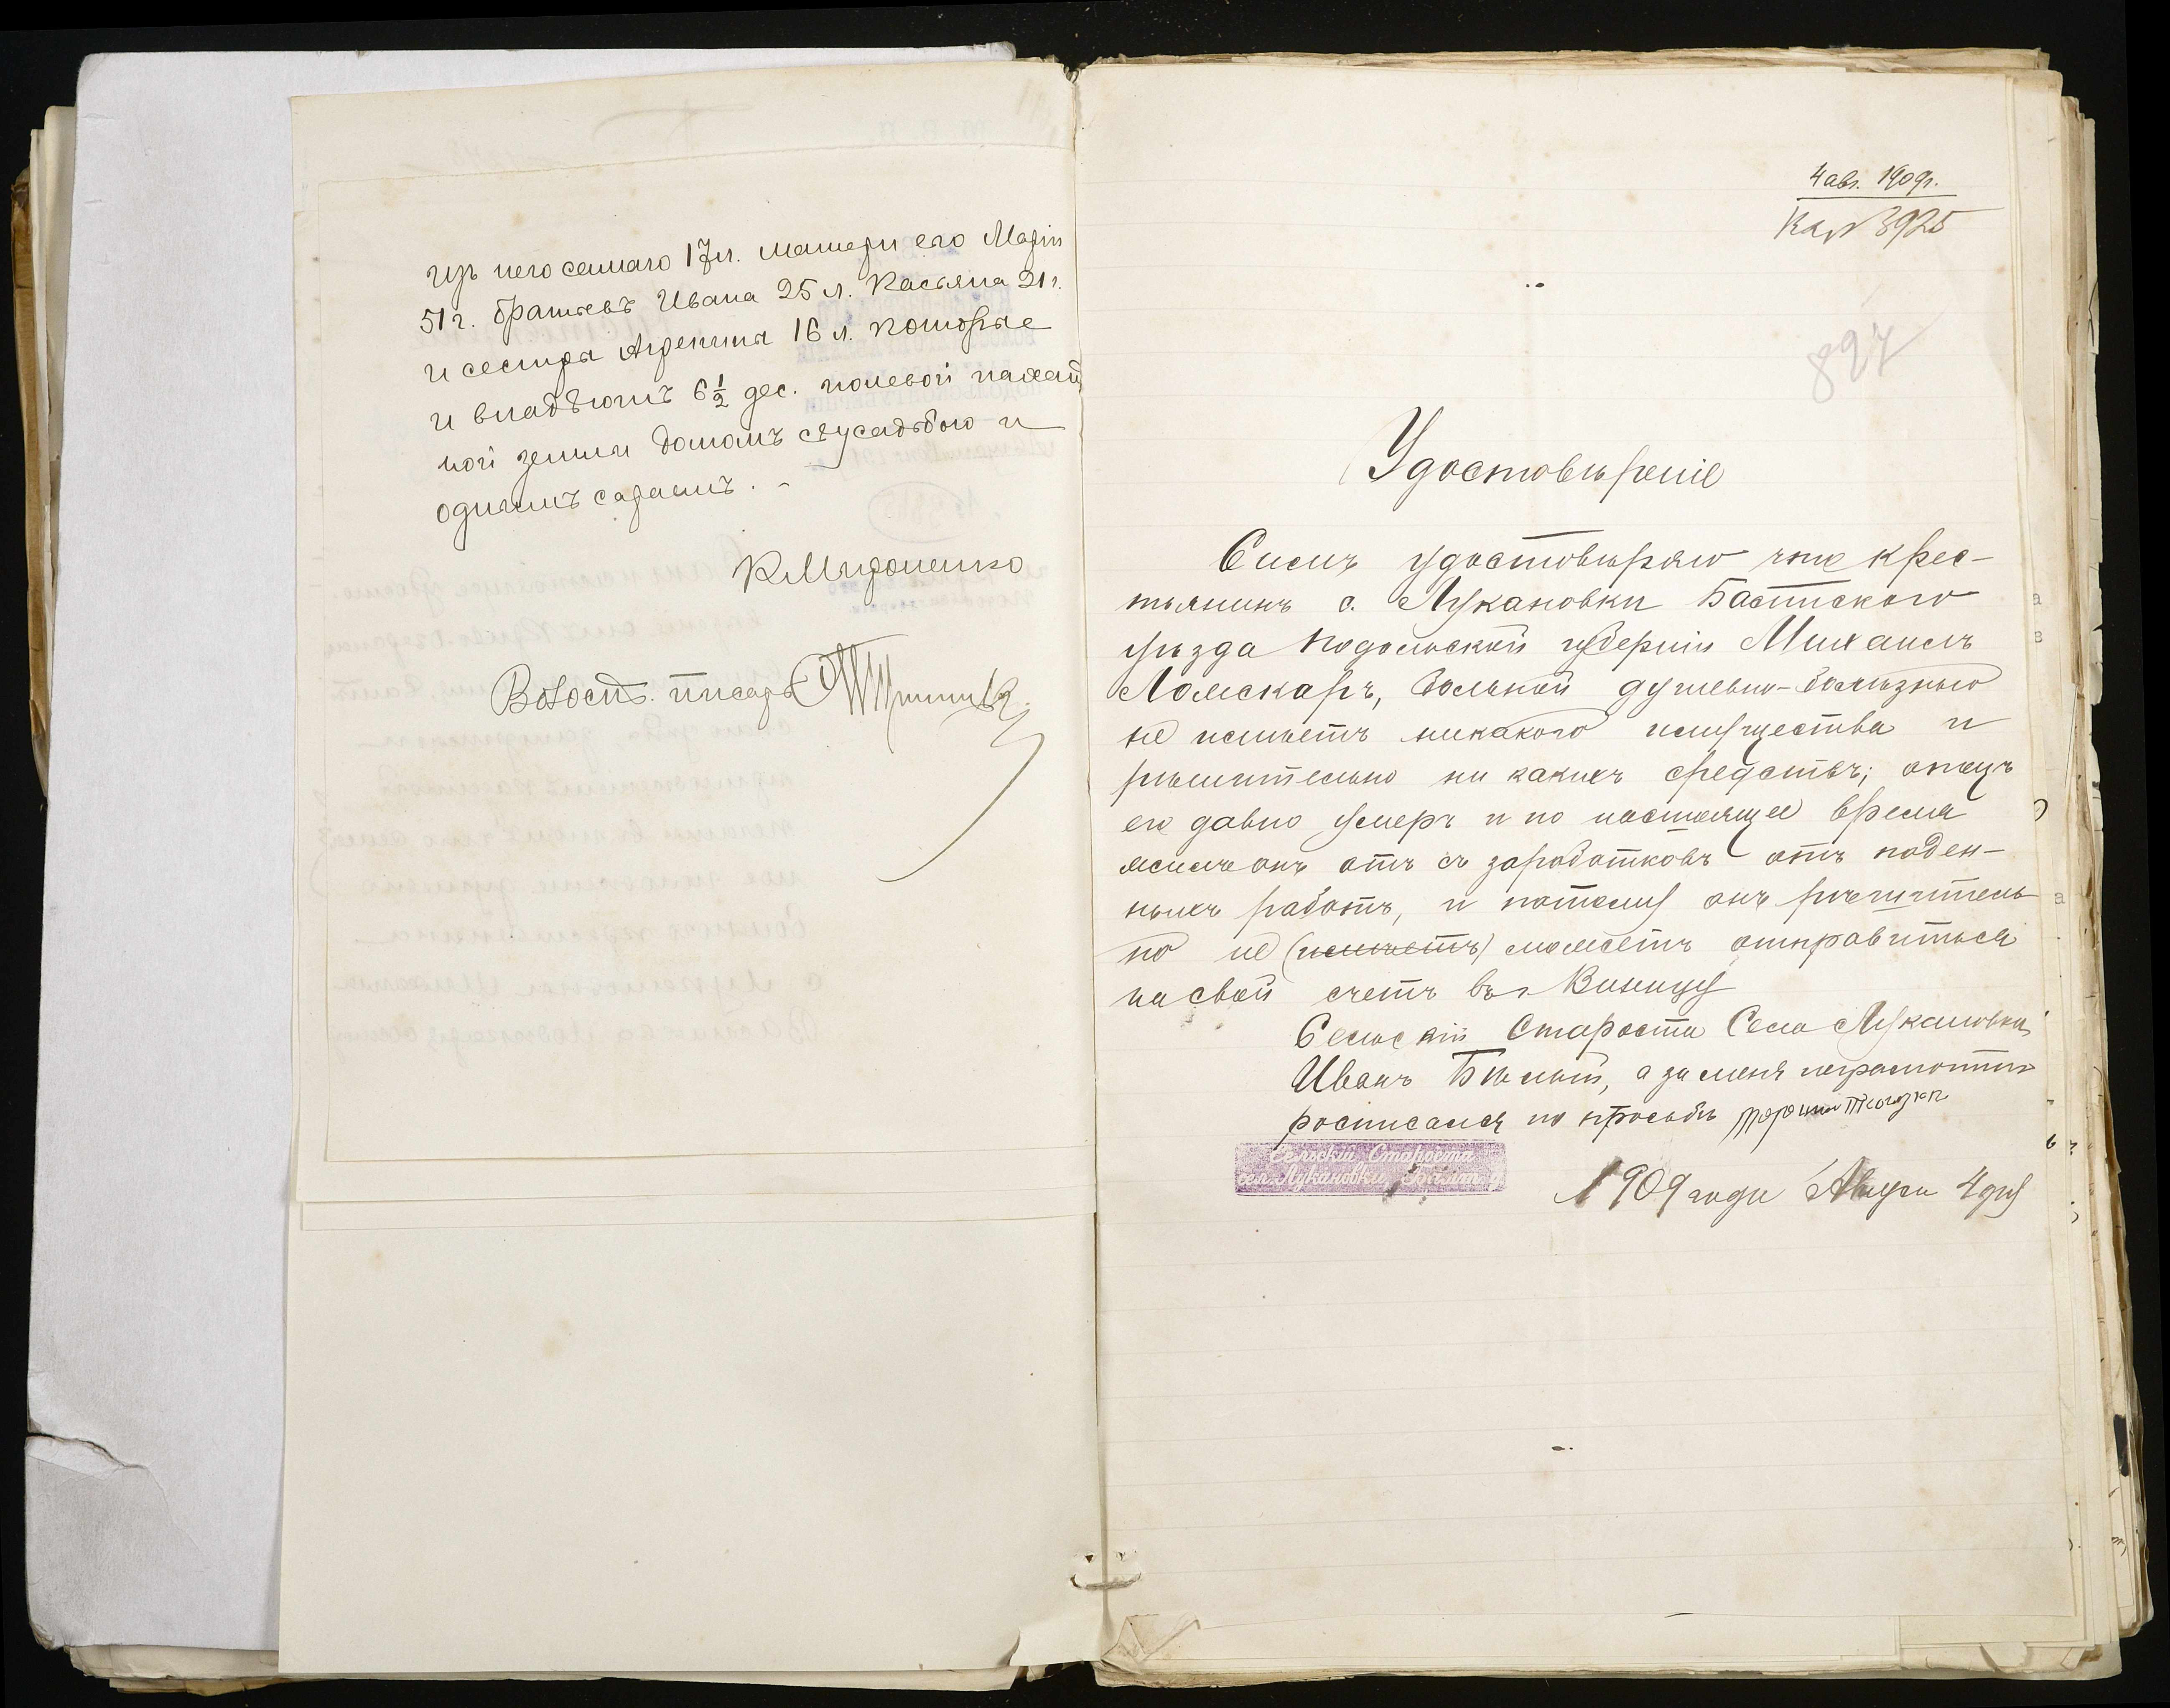 изъ него самаго 17 л. матери его Маріи
51 г. братьевъ Ивана 25 л. Касьяна 21 г.
и сестра Агрепина 16 л. которые
и владѣютъ 6 1/2 дес. полевой пахат
ной земли домомъ съ усадьбою и
однимъ сараемъ.
К Мироненко
Волост. писарь
4 авг. 1909 г.
3925
897
Удостовѣреніе
Симъ удостовѣряю что крес-
тьянинъ с. Лукановки Балтского
уѣзда Подольской губерніи Михаилъ
Ложскаръ, больной душевно-болѣзнью
не имѣетъ никакого имущества и
рѣшительно ни какихъ средствъ; отецъ
его давно умеръ и по настоящее время
жилъ онъ отъ съ заработковъ отъ поден-
ныхъ работъ, и потому онъ рѣшитель-
но не (имѣетъ) можетъ отправиться
на свой счетъ въ г. Виницу
Сельскій Староста Села Лукановки
Иванъ Бѣлый, а за меня неграмотн
росписался по просьбѣ
Сельскій Староста
сел. Лукановки
1909 года Авгус 4 дня